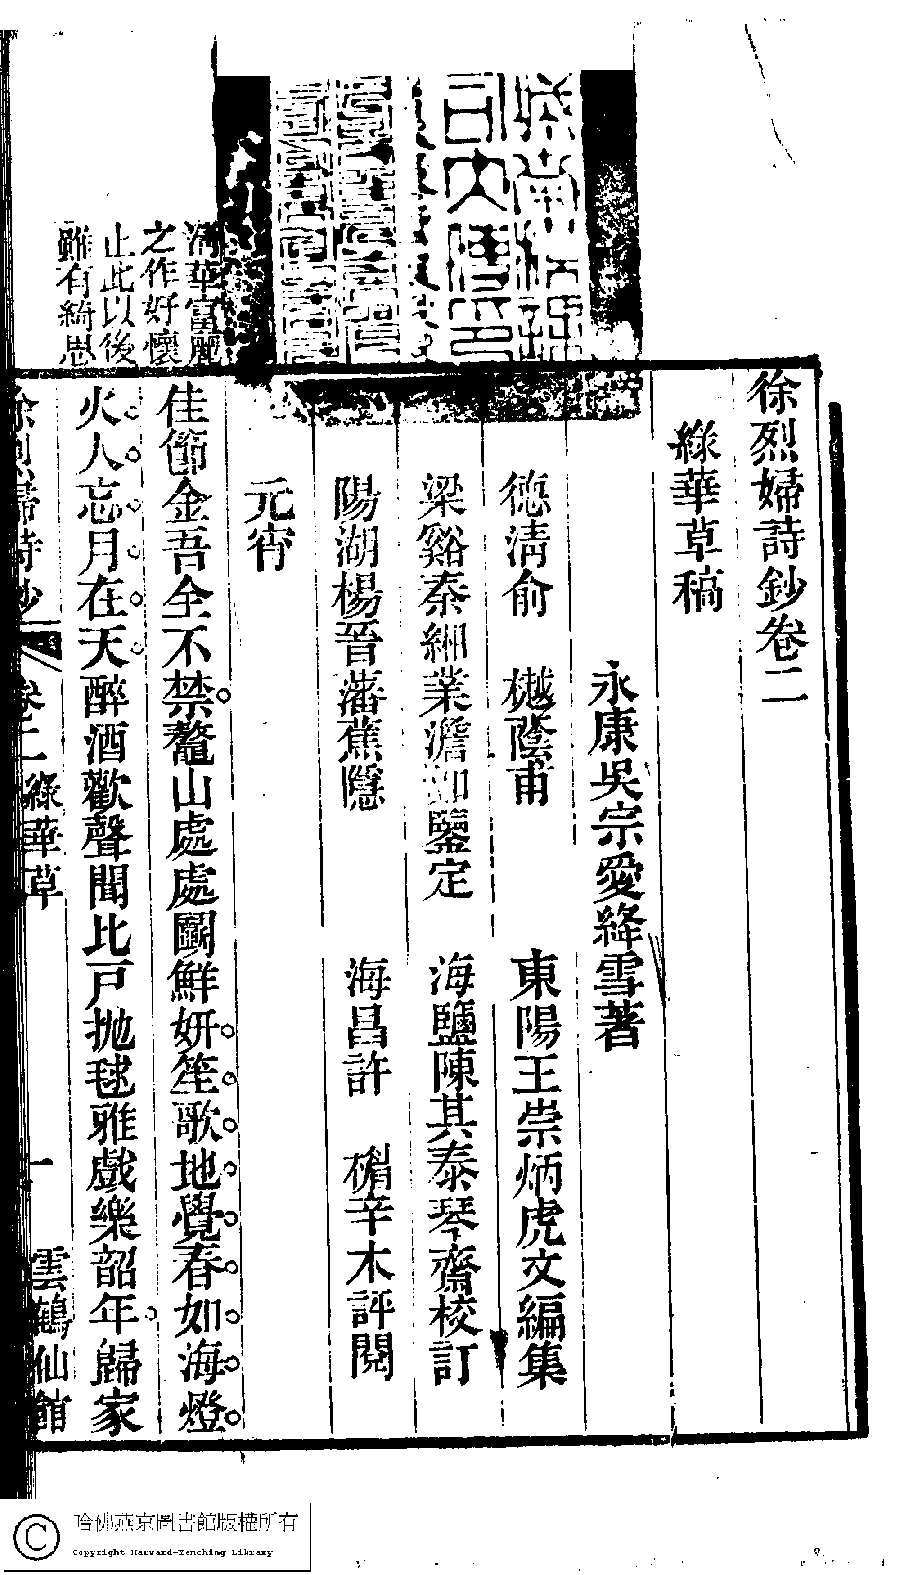 徐烈婦詩鈔卷二
綠華草稿
永康吳宗愛絳雪著
德清俞 樾蔭甫 東陽王崇炳虎文編集
梁谿秦緗業澹如鑒定 海鹽陳其泰琴齋校訂
陽湖楊晉藩蕉隱 海昌許 楣辛木評閱
元宵
佳節金吾全不禁鼇山處處鬭鮮妍笙歌地覺春如海燈
火人忘月在天醉酒歡聲聞比戶拋毬雅戲樂韶年歸家
清華富麗
之作好懷
止此以後
雖有綺思
徐烈婦詩鈔 卷二 綠華草 一 雲鶴仙館
哈佛燕京圖書館版權所有
Copyright Harvard-Yenching Library